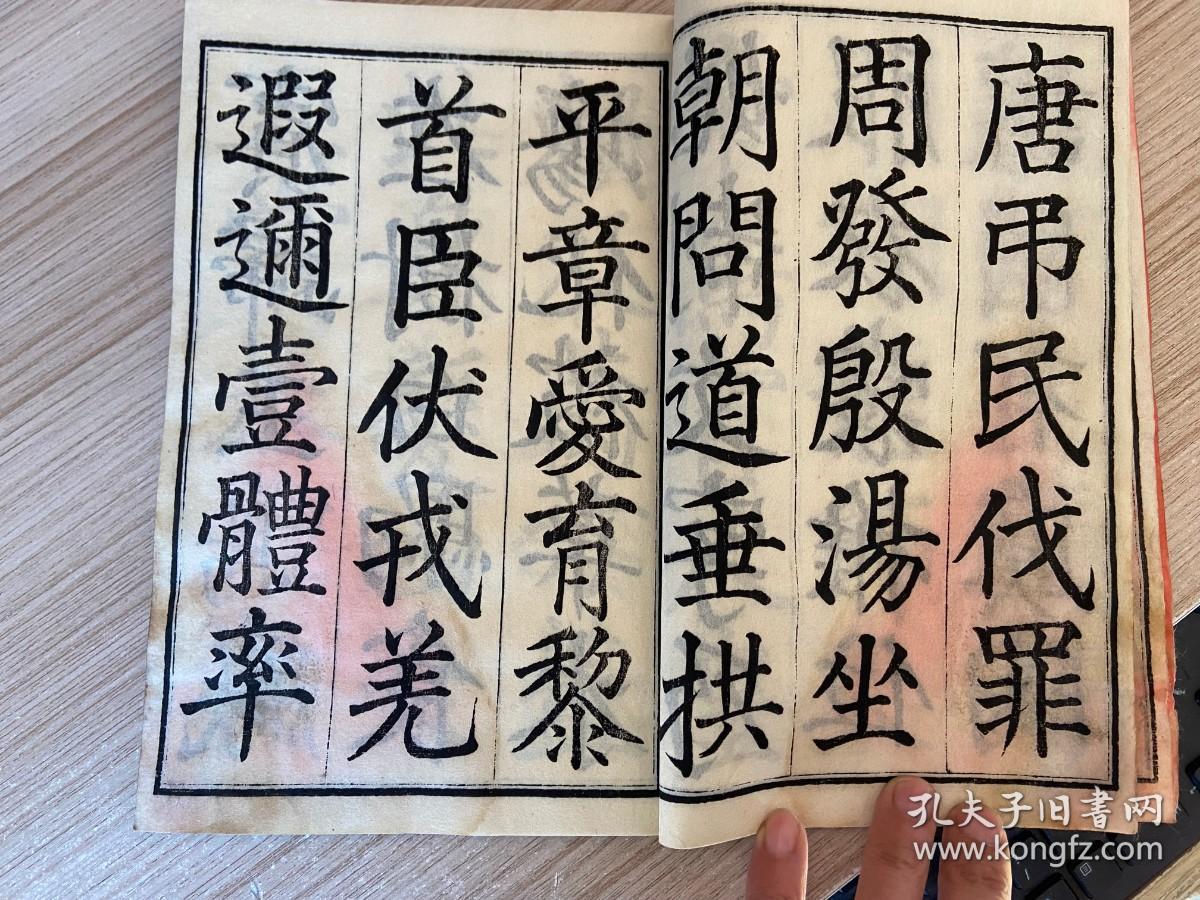 唐弔民伐罪
周發殷湯坐
朝問道垂拱
平章愛育黎
首臣伏戎羌
遐邇壹體率
孔夫子旧書网
www.kongfz.com